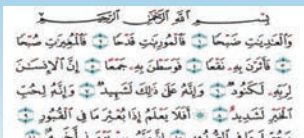 بِسْمِ ٱللَّهِ ٱلرَّحْمَٰنِ ٱلرَّحِيمِ
وَٱلْعَٰدِيَٰتِ ضَبْحًا ۝ فَٱلْمُورِيَٰتِ قَدْحًا ۝ فَٱلْمُغِيرَٰتِ صُبْحًا
۝ فَأَثَرْنَ بِهِۦ نَقْعًا ۝ فَوَسَطْنَ بِهِۦ جَمْعًا ۝ إِنَّ ٱلْإِنسَٰنَ
لِرَبِّهِۦ لَكَنُودٌ ۝ وَإِنَّهُۥ عَلَىٰ ذَٰلِكَ لَشَهِيدٌ ۝ وَإِنَّهُۥ لِحُبِّ
ٱلْخَيْرِ لَشَدِيدٌ ۝ أَفَلَا يَعْلَمُ إِذَا بُعْثِرَ مَا فِى ٱلْقُبُورِ ۝